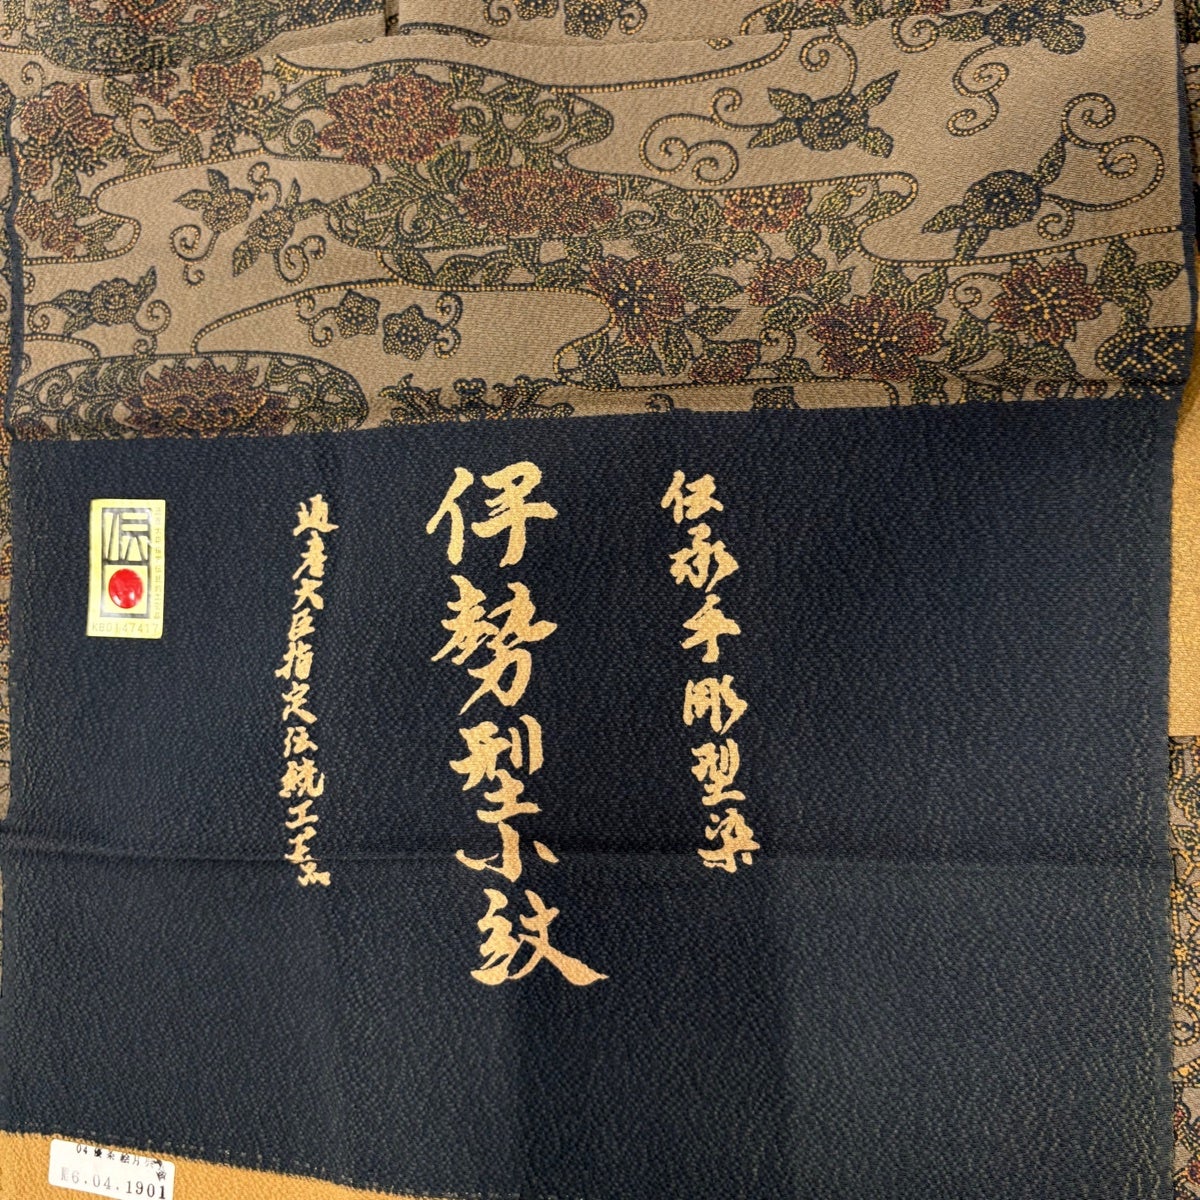 伝承手彫型染
伊勢型小紋
通産大臣指定伝統工芸品
伝
KB0147417
6.04.1901